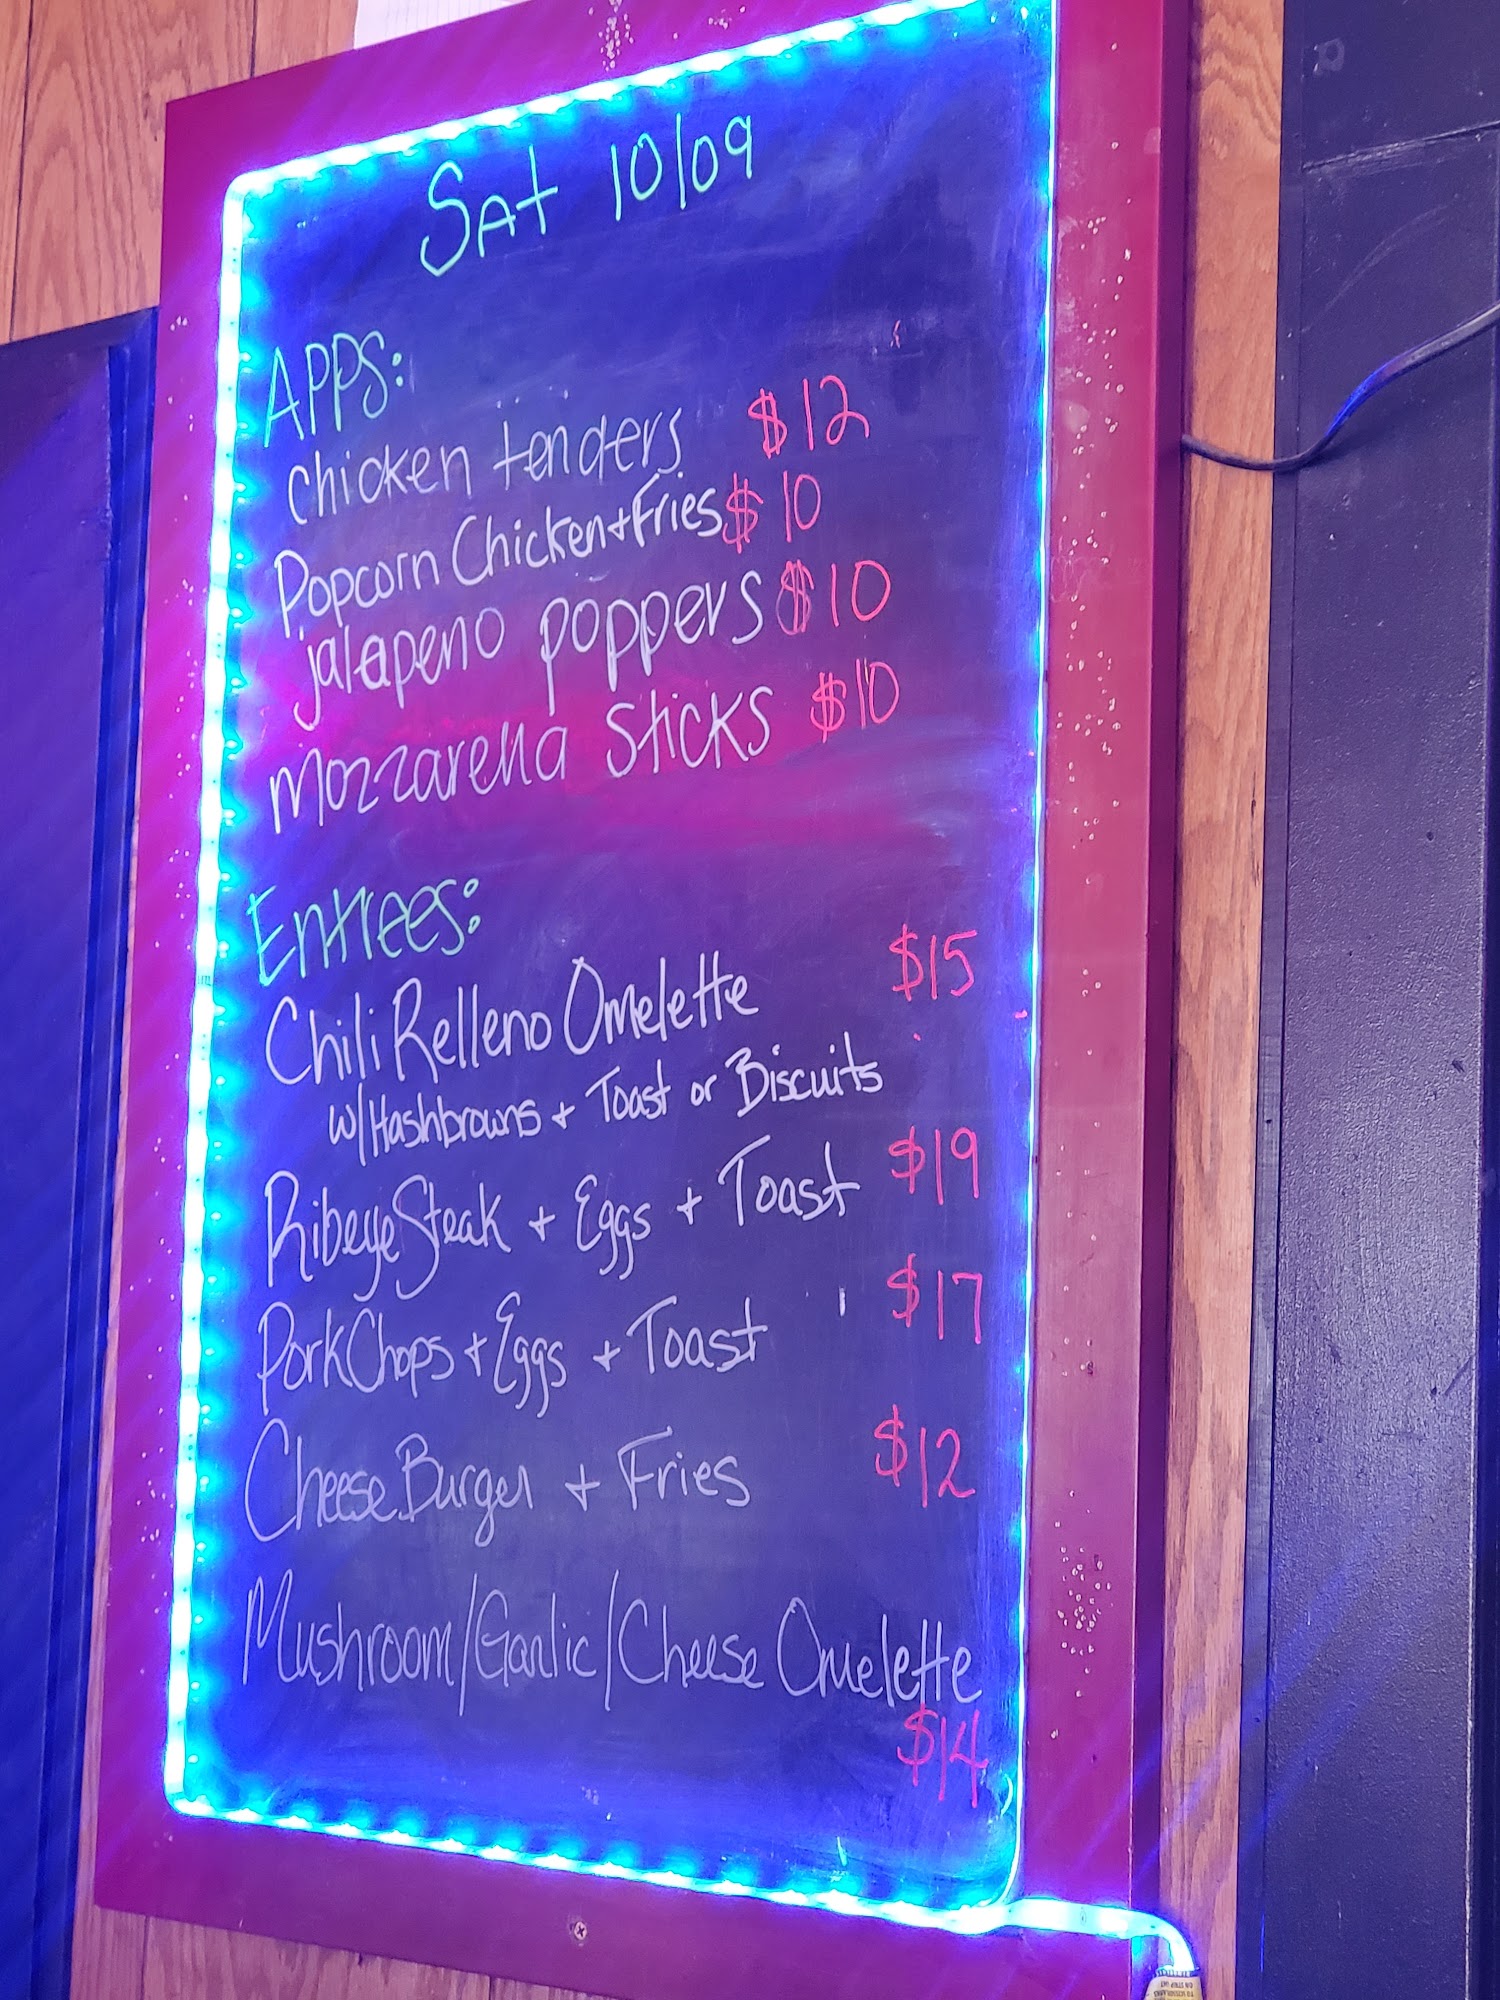 Sat 10/09
Apps:
chicken tenders $12
Popcorn Chicken + Fries $10
jalapeno poppers $10
mozzarella sticks $10
Entrees:
Chili Relleno Omelette $15
w/ Hashbrowns + Toast or Biscuits
Ribeye Steak + Eggs + Toast $19
Pork Chops + Eggs + Toast $17
Cheese Burger + Fries $12
Mushroom/Garlic/Cheese Omelette
$14